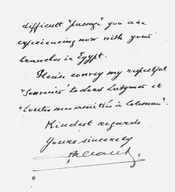 difficult "passage" you are
experiencing now with your
branches in Egypt.
Please convey my respectful
"Souvenirs" to Lord Ladymer et
"toutes mes amitiés à Coleman".
Kindest regards
Yours sincerely